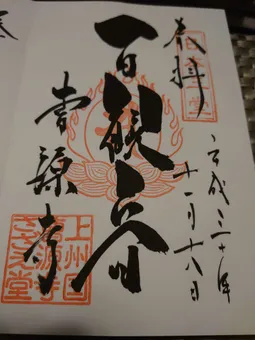 奉拝
平成三十年
十一月十八日
百観音
曹源寺